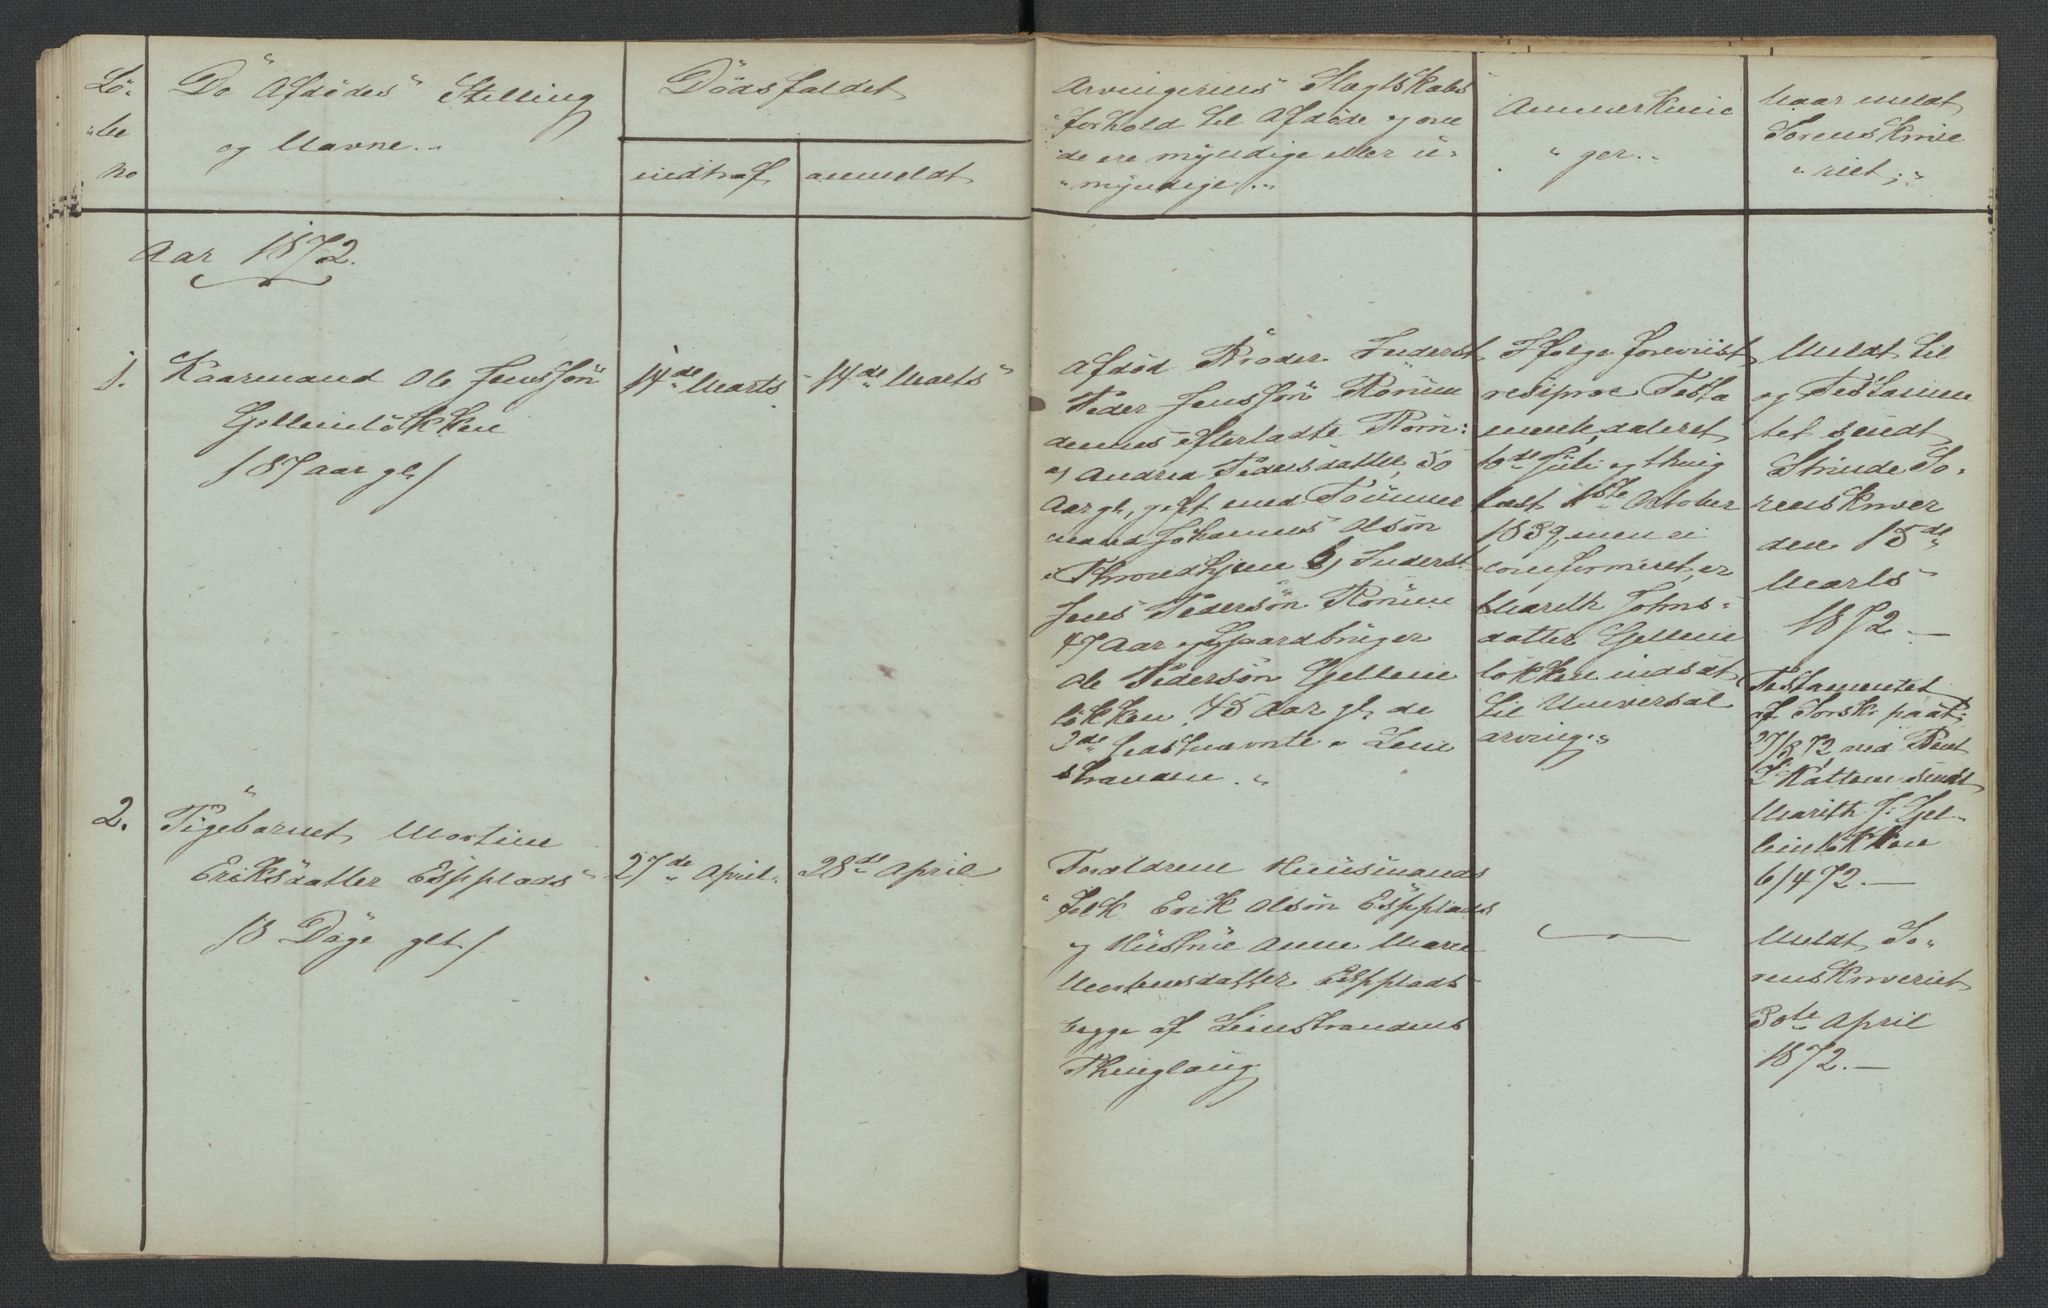 Lö-
"be
No
De Afdødes Stilling
og Navne.
Dödsfaldet
indtraf
anmeldt
Arvingernes Slægtskabs
forhold til Afdøde og om
de ere myndige eller u-
"myndige.
Anmerknin
"ger.
Naar meldt
Sorenskrive
"riet.
Aar 1872.
1.
Kaarmand Ole Jensøn
Gellinlökken
/87 aar gl/
14de Marts
14de Marts
Afdød Broder Inderst
Peder Jensøn Rönum
dennes efterladte Börn:
a) Andrea Pedersdatter, 50
Aar gl, gift med Tömmer
mand Johannes Olsön
i Throndhjem b) Inderst
Jens Pedersön Rönum
47 Aar og Gaardbruger
Ole Pedersön Gellein
lökken 45 Aar gl, de
2de sidstnævnte i Lein
stranden.
Ifølge foreviist
resiproc Testa
mente, dateret
10de Juli og thing
læst 1ste October
1839, men ei
confirmeret, er
Marith Johns-
datter Gellein
lökken indsat
til Universal
arving.
Meldt til
og Testamen
tet sendt
Strinde So-
renskriver
den 15de
Marts
1872.
Testamentet
af Sorskr paat:
27/3 72 ved Bent
L. Kattem sendt
Marith J. Gel-
leinlökken
6/4 72.
2.
Pigebarnet Martine
Eriksdatter Espplads
/8 Døge glt/
27de April.
28de April
Forældrene Huusmands
folk Erik Olsön Espplads
og Hustrue Anne Marie
Mortensdatter Espplads
begge af Leinstrandens
Thinglaug
Meldt So-
renskriveriet
30te April
1872.